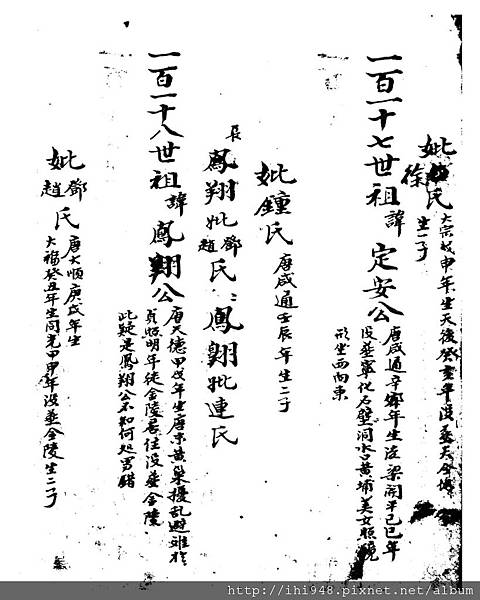 妣徐氏
大宗戊申年生天後癸亥年没葬天
生二子
一百一十七世祖諱定安公
唐咸通辛卯年生泫梁開平己巳年
没葬寧化石壁洞水口黄埔美女照鏡
形坐西向東
妣鍾氏唐咸通壬辰年生二子
長鳳翔妣鄧趙氏鳳翾妣連氏
一百一十八世祖諱鳳翾公
唐天德甲戌年生唐末黄巢擾乱避难於
貞照明年徒金陵居住没葬金陵
此疑是鳳翔公不知何処男錯
妣鄧趙氏
唐大順庚戌年生
大福癸丑年生同光甲申年没葬金陵生二子
http://ihi948.pixnet.net/album